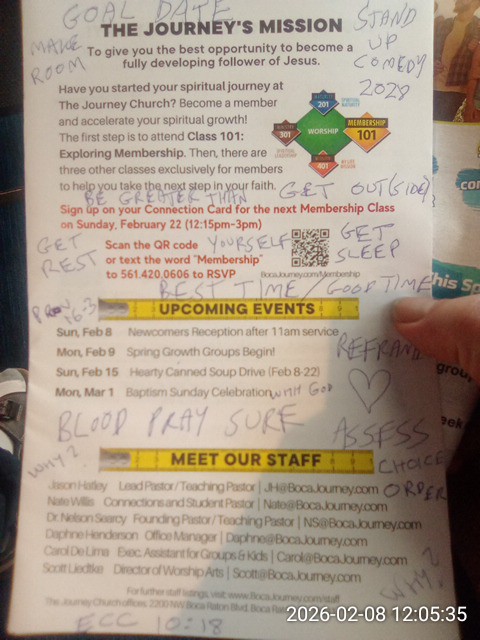 GOAL DATE
THE JOURNEY'S MISSION
STAND
UP
COMEDY
2028
MAKE
ROOM
To give you the best opportunity to become a
fully developing follower of Jesus.
Have you started your spiritual journey at
The Journey Church? Become a member
and accelerate your spiritual growth!
The first step is to attend Class 101:
Exploring Membership. Then, there are
three other classes exclusively for members
to help you take the next step in your faith.
201
SPIRITUAL
MATURITY
301
SPIRITUAL
LEADERSHIP
WORSHIP
MEMBERSHIP
101
401
MY LIFE
MISSION
BE GREATER THAN
GET OUT(SIDE)
Sign up on your Connection Card for the next Membership Class
on Sunday, February 22 (12:15pm-3pm)
GET
REST
Scan the QR code
or text the word "Membership"
to 561.420.0606 to RSVP
YOURSELF
GET
SLEEP
BocaJourney.com/Membership
BEST TIME/GOOD TIME
PROV
16:3
UPCOMING EVENTS
Sun, Feb 8 Newcomers Reception after 11am service
Mon, Feb 9 Spring Growth Groups Begin!
Sun, Feb 15 Hearty Canned Soup Drive (Feb 8-22)
Mon, Mar 1 Baptism Sunday Celebration
WITH GOD
REFRAME
BLOOD PRAY SURE
ASSESS
CHOICE
ORDER
WHY?
MEET OUR STAFF
Jason Hatley Lead Pastor/Teaching Pastor | JH@BocaJourney.com
Nate Willis Connections and Student Pastor | Nate@BocaJourney.com
Dr. Nelson Searcy Founding Pastor/Teaching Pastor | NS@BocaJourney.com
Daphne Henderson Office Manager | Daphne@BocaJourney.com
Carol De Lima Exec. Assistant for Groups & Kids | Carol@BocaJourney.com
Scott Liedtke Director of Worship Arts | Scott@BocaJourney.com
WHY?
For further staff listings, visit: www.BocaJourney.com/staff
The Journey Church offices: 2200 NW Boca Raton Blvd. Boca
ECC 10:18
his Sp
grou
eek
2026-02-08 12:05:35